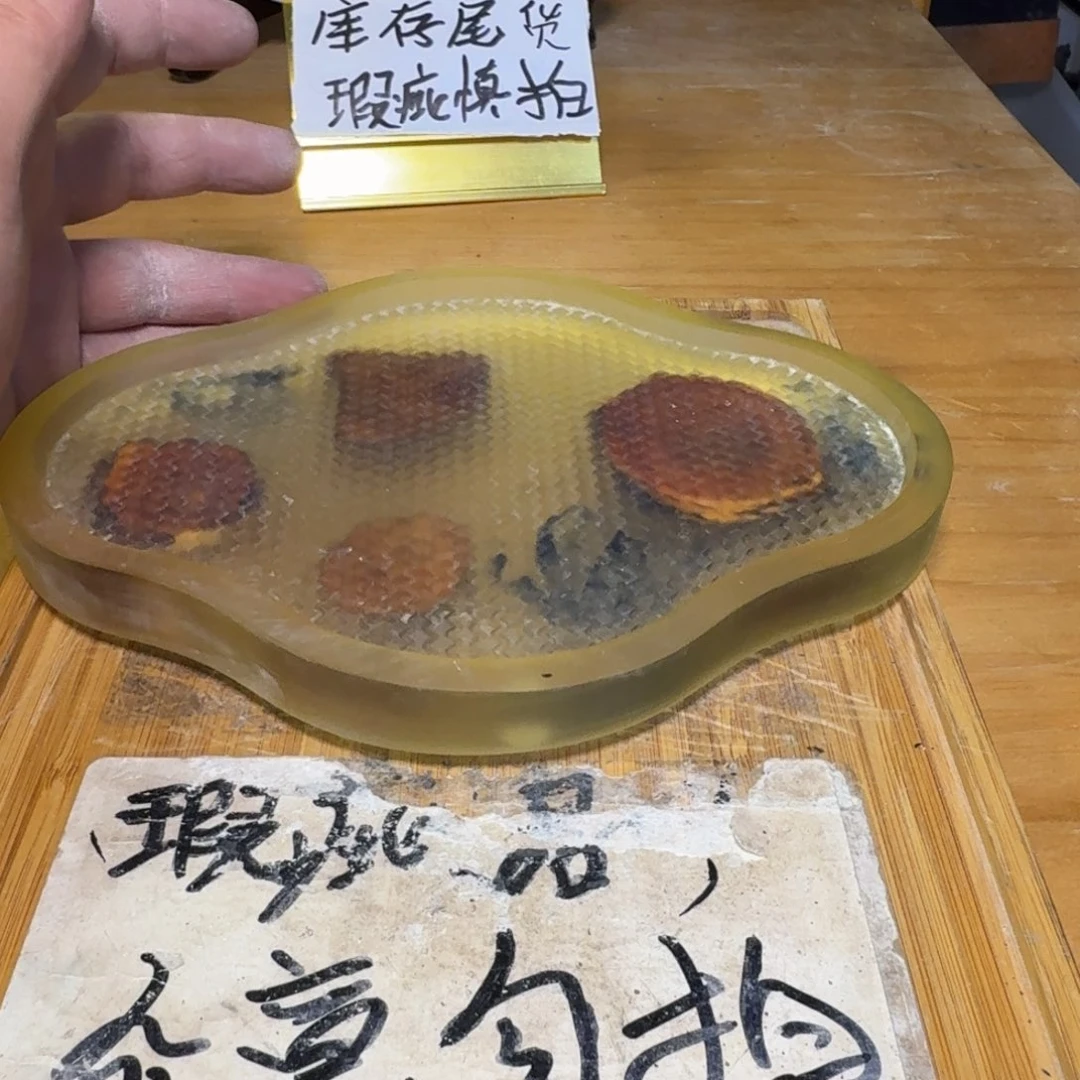 库存尾货
瑕疵慎拍
瑕疵品,
介意勿拍